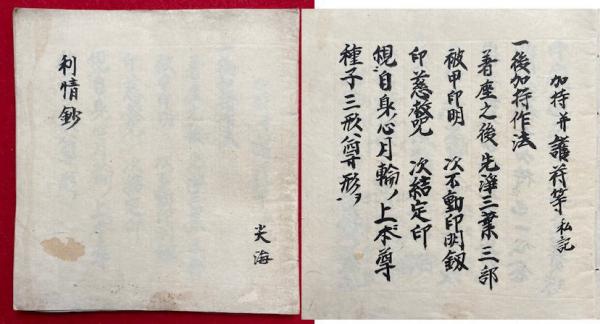 利情鈔
尖海
加持并護符等 私記
一後加持作法
着座之後先淨三業三部
被甲印明 次不動印明劔
印慈救咒 次結定印
観自身ノ心月輪ノ上本尊
種子三形尊形ヲ